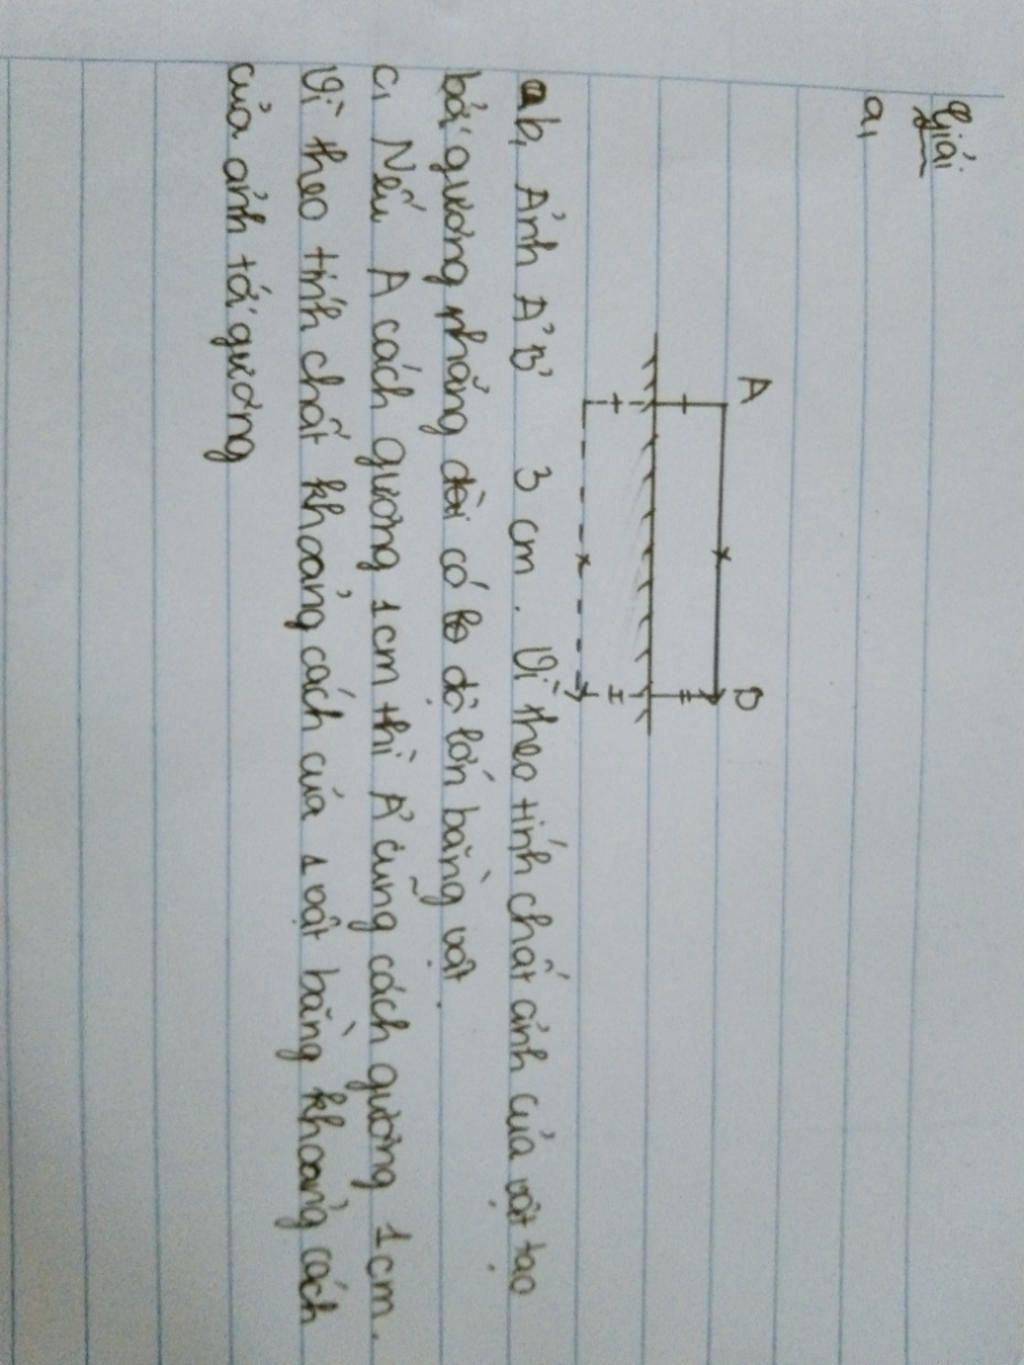 Giải
a,
A B
b, Ảnh A'B' 3 cm. Vì theo tính chất ảnh của vật tạo
bởi gương phẳng có độ lớn bằng vật.
c, Nếu A cách gương 1cm thì A' cũng cách gương 1cm.
Vì theo tính chất khoảng cách của 1 vật bằng khoảng cách
của ảnh tới gương